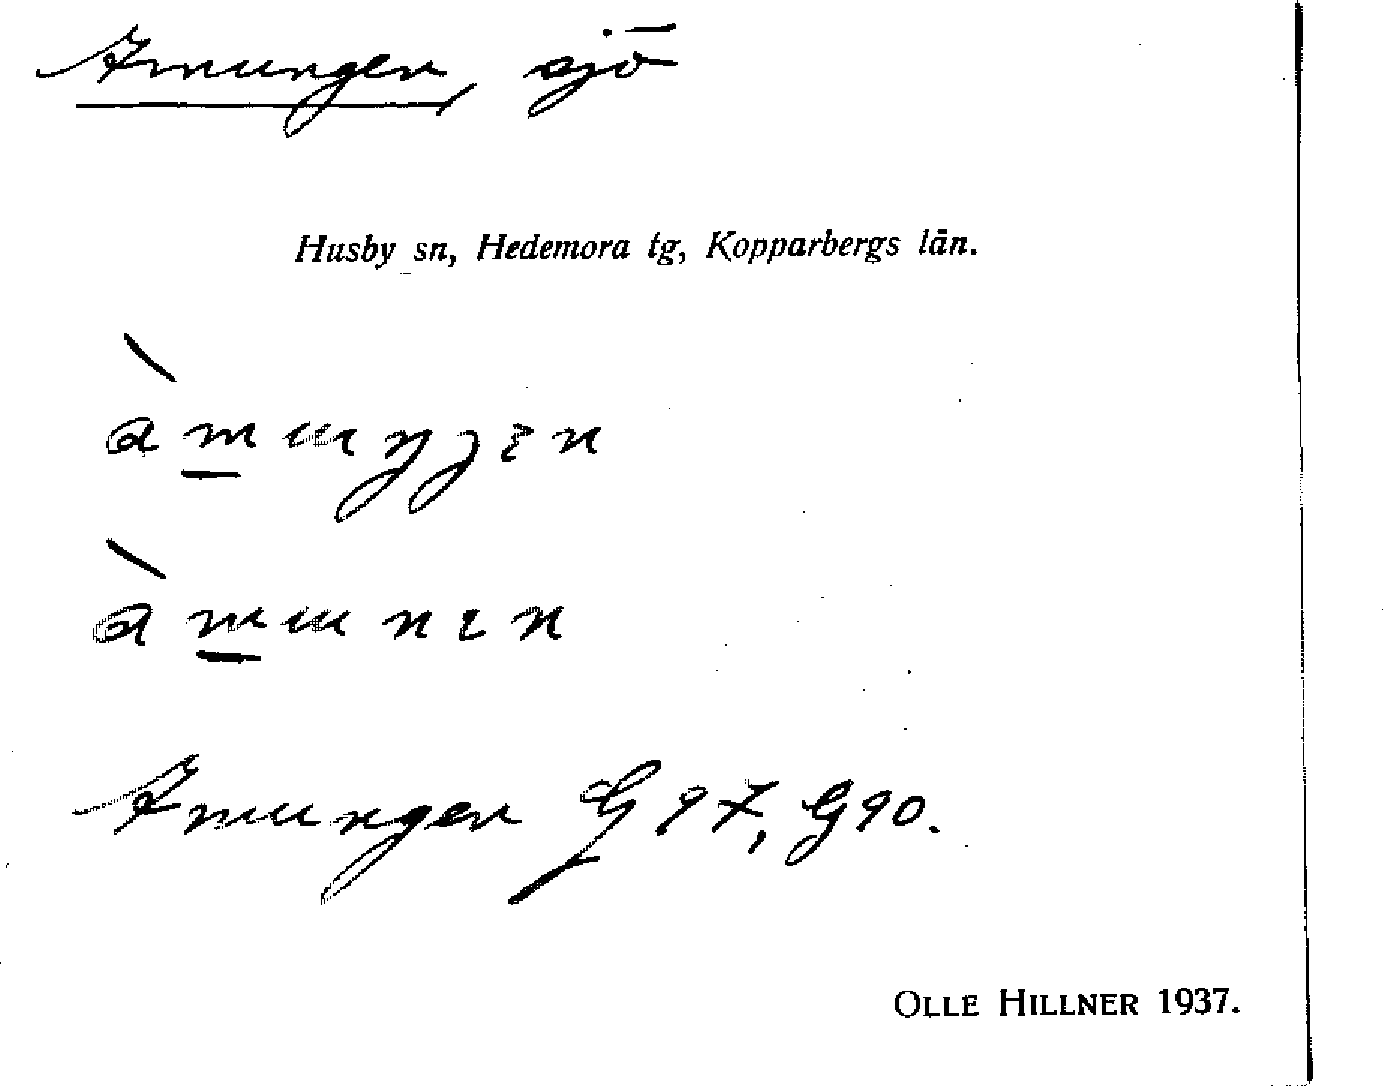 Amungen, sjö
Husby sn, Hedemora tg, Kopparbergs län.
Amungen G 97, G 90.
OLLE HILLNER 1937.